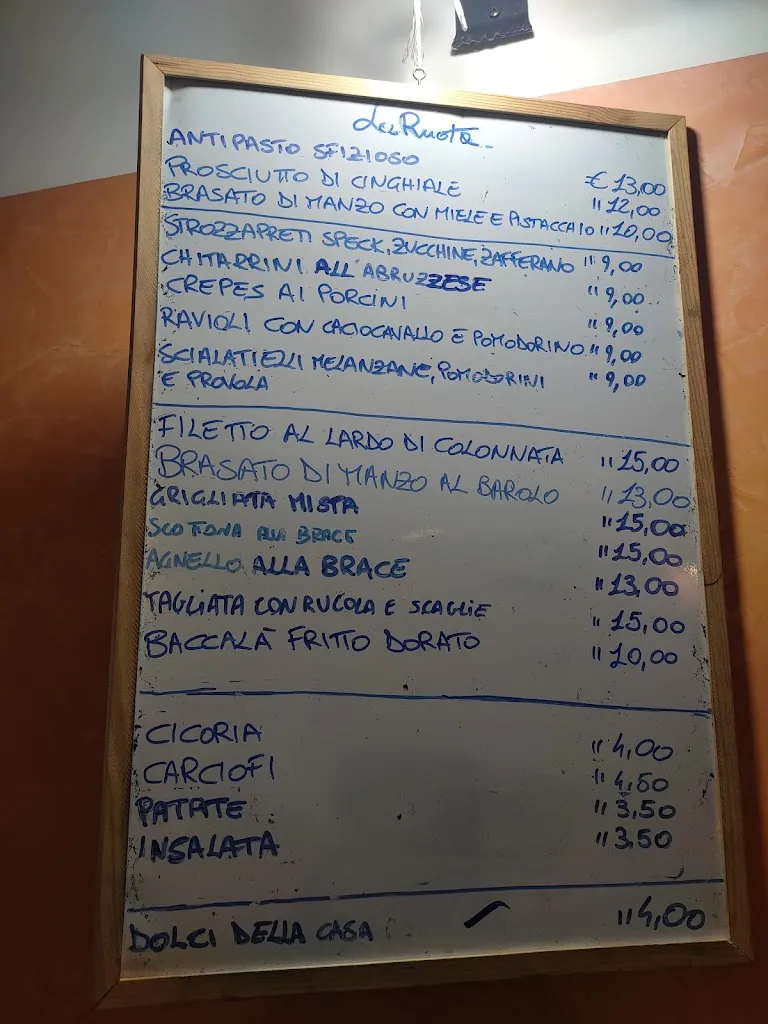 La Ruota
ANTIPASTO SFIZIOSO € 13,00
PROSCIUTTO DI CINGHIALE " 12,00
BRASATO DI MANZO CON MIELE E PISTACCHIO " 10,00
STROZZAPRETI SPECK, ZUCCHINE, ZAFFERANO " 9,00
CHITARRINI ALL'ABRUZZESE " 9,00
CREPES AI PORCINI " 9,00
RAVIOLI CON CACIOCAVALLO E POMODORINO " 9,00
SCIALATIELLI MELANZANE, POMODORINI " 9,00
E PROVOLA
FILETTO AL LARDO DI COLONNATA " 15,00
BRASATO DI MANZO AL BAROLO " 13,00
GRIGLIATA MISTA " 15,00
SCOTTONA ALLA BRACE " 15,00
AGNELLO ALLA BRACE " 13,00
TAGLIATA CON RUCOLA E SCAGLIE " 15,00
BACCALÀ FRITTO DORATO " 10,00
CICORIA " 4,00
CARCIOFI " 4,50
PATATE " 3,50
INSALATA " 3,50
DOLCI DELLA CASA " 4,00